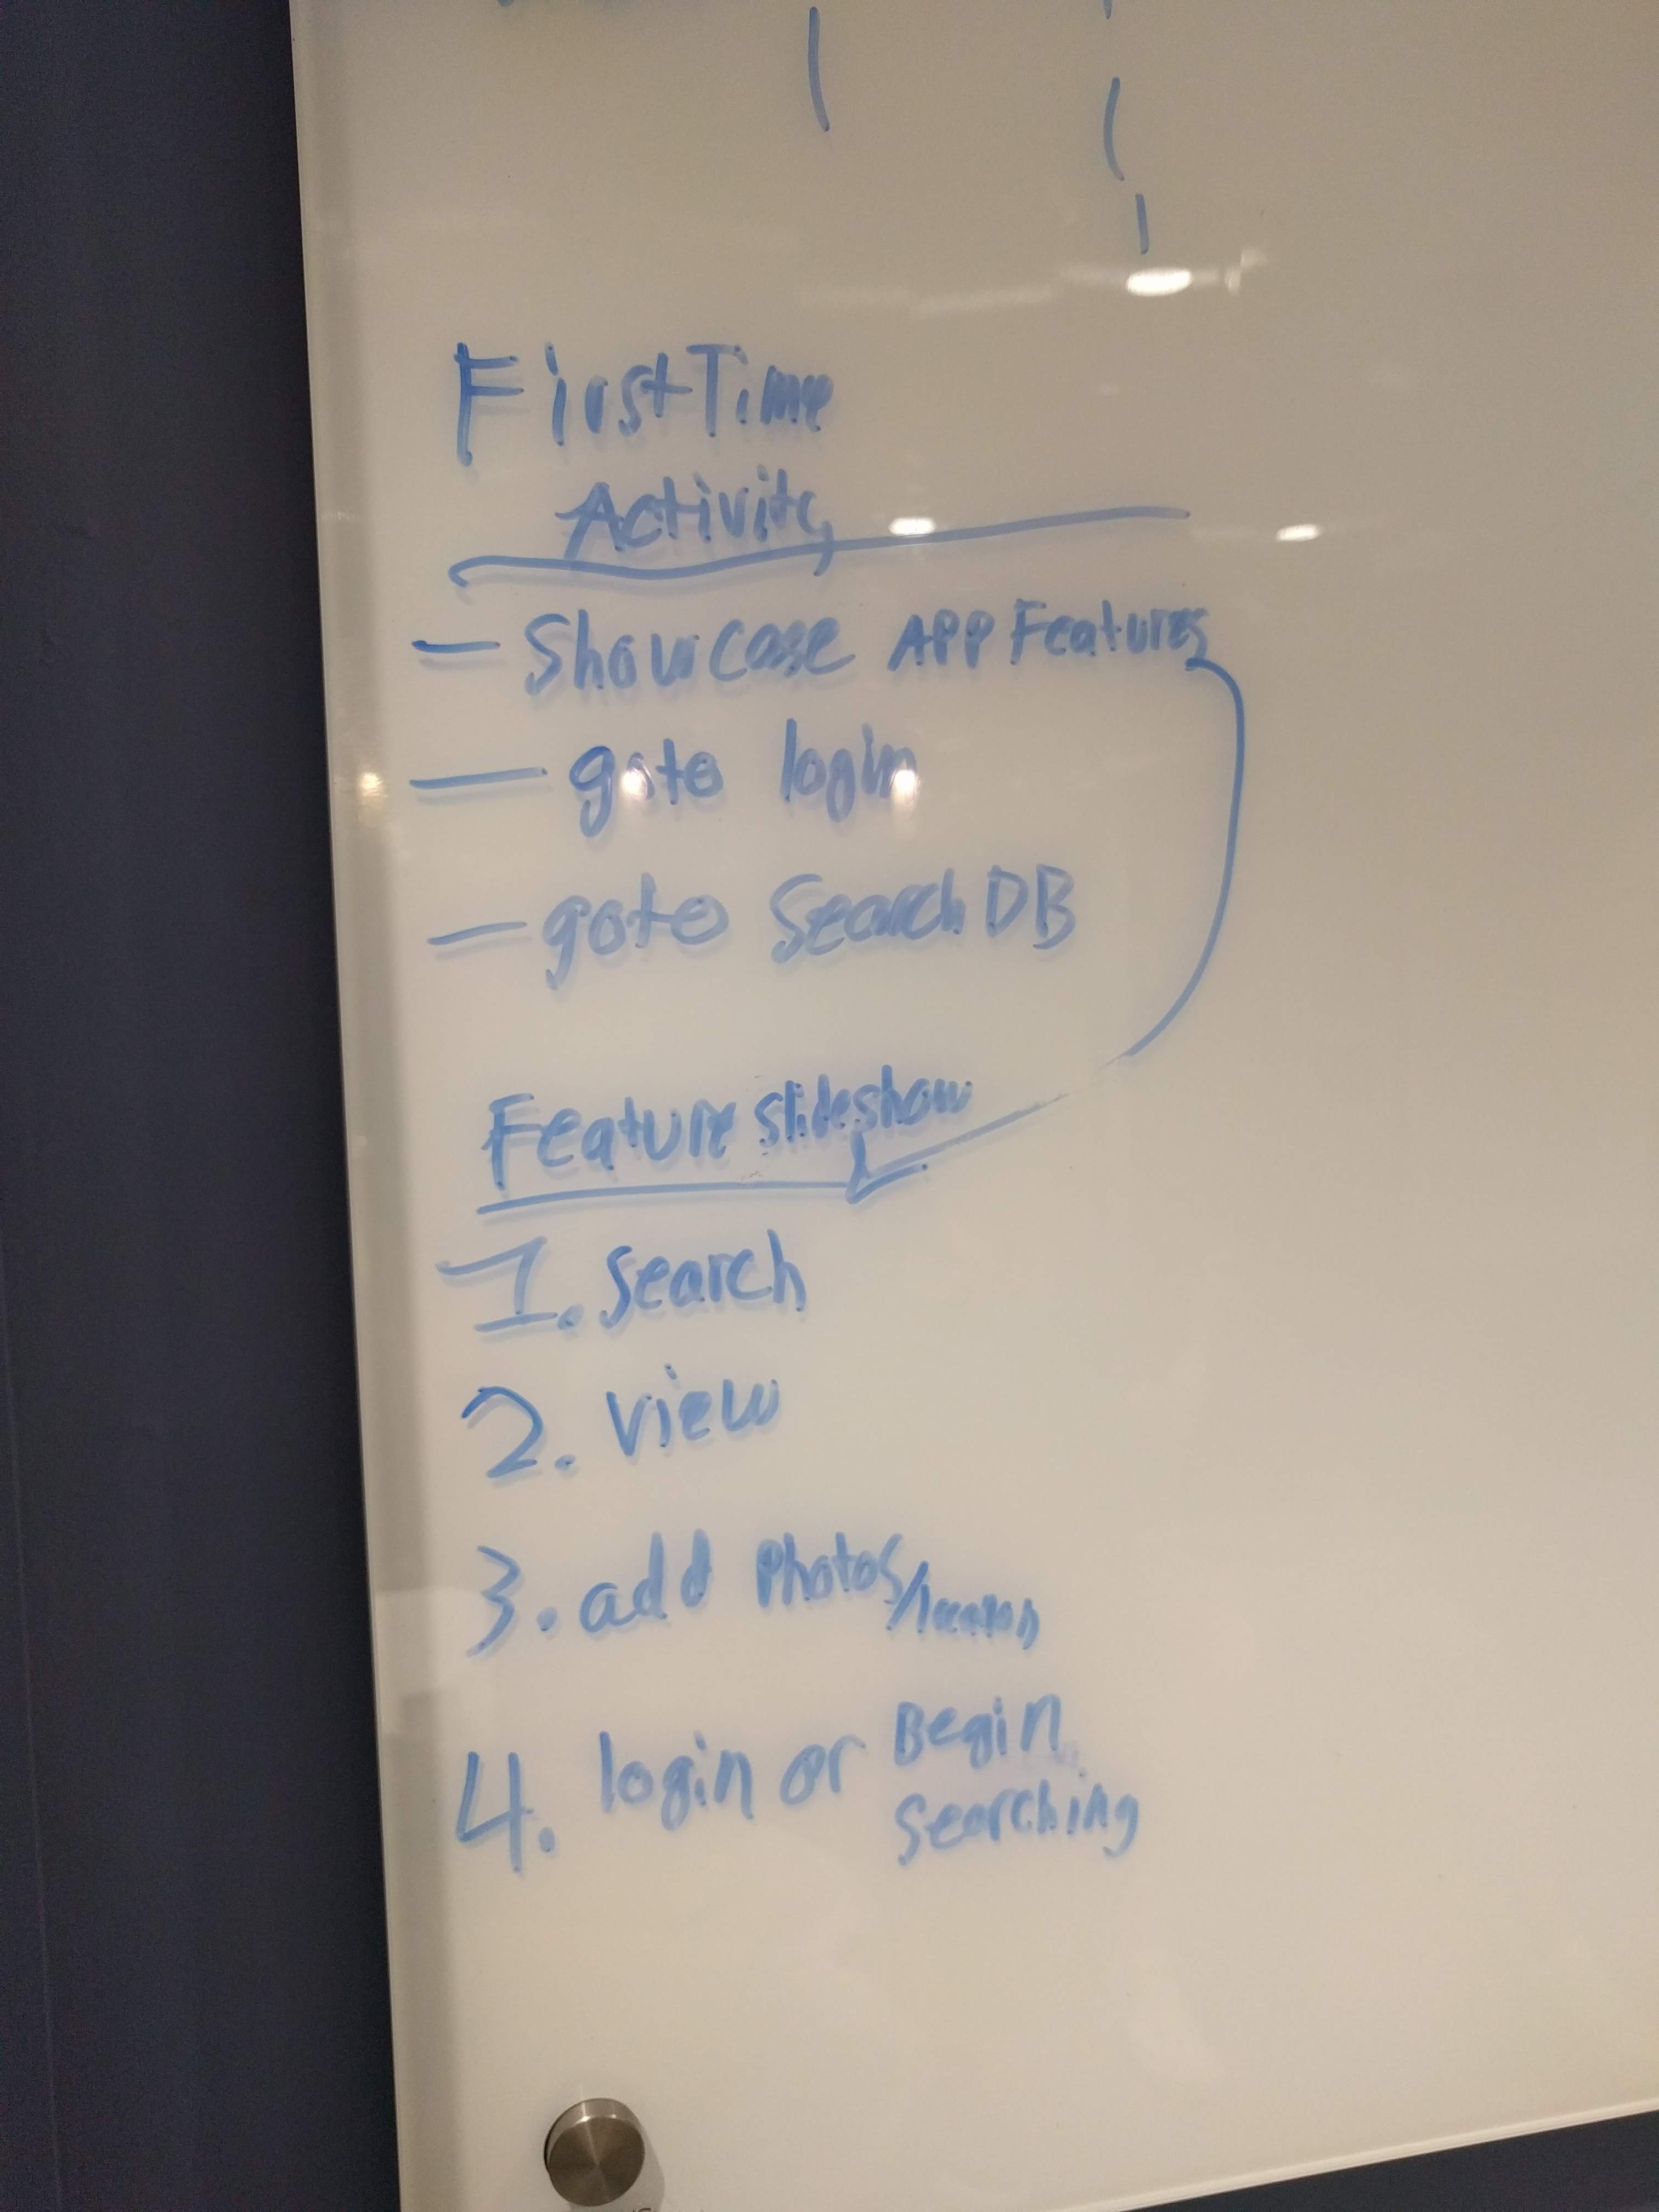 First Time
Activity
- Showcase APP Features
- goto login
- goto Search DB
Feature slideshow
1. search
2. view
3. add photos/
4. login or Begin
searching